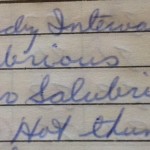 dy Interva
brious
o Salubri
Hot thun